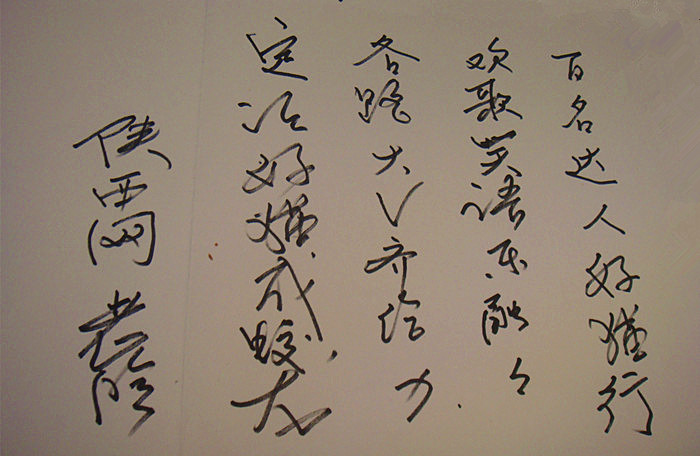 百名达人好猫行
欢歌笑语乐融々
各路大V齐给力.
定好猫成蛟龙
陕西网